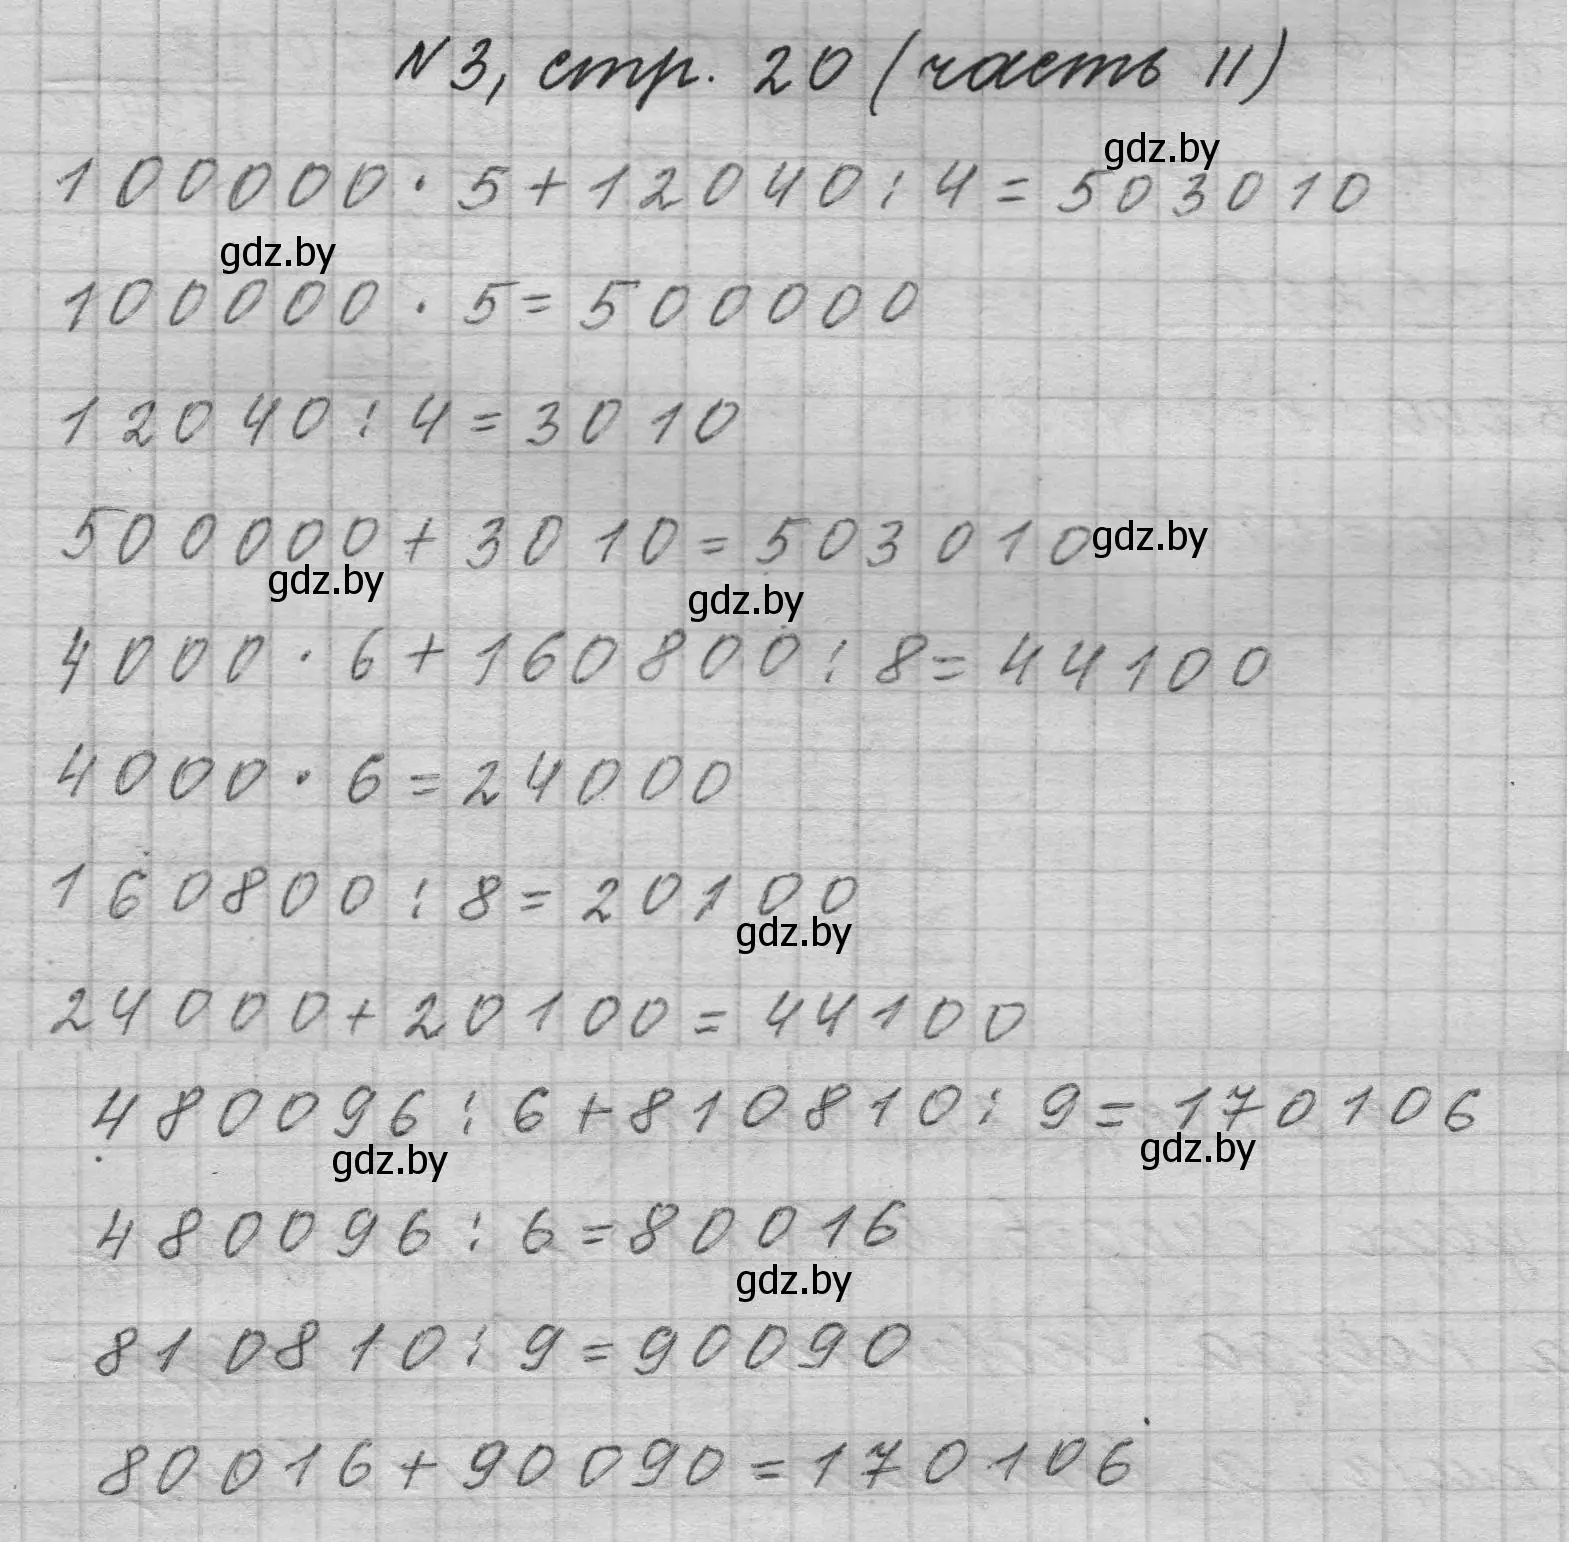 N 3, стр. 20 (часть II)
gdz.by
100000 · 5 + 12040 : 4 = 503010
gdz.by
100000 · 5 = 500000
12040 : 4 = 3010
500000 + 3010 = 503010 gdz.by
gdz.by gdz.by
4000 · 6 + 160800 : 8 = 44100
4000 · 6 = 24000
160800 : 8 = 20100
gdz.by
24000 + 20100 = 44100
480096 : 6 + 810810 : 9 = 170106
gdz.by gdz.by
480096 : 6 = 80016
gdz.by
810810 : 9 = 90090
80016 + 90090 = 170106